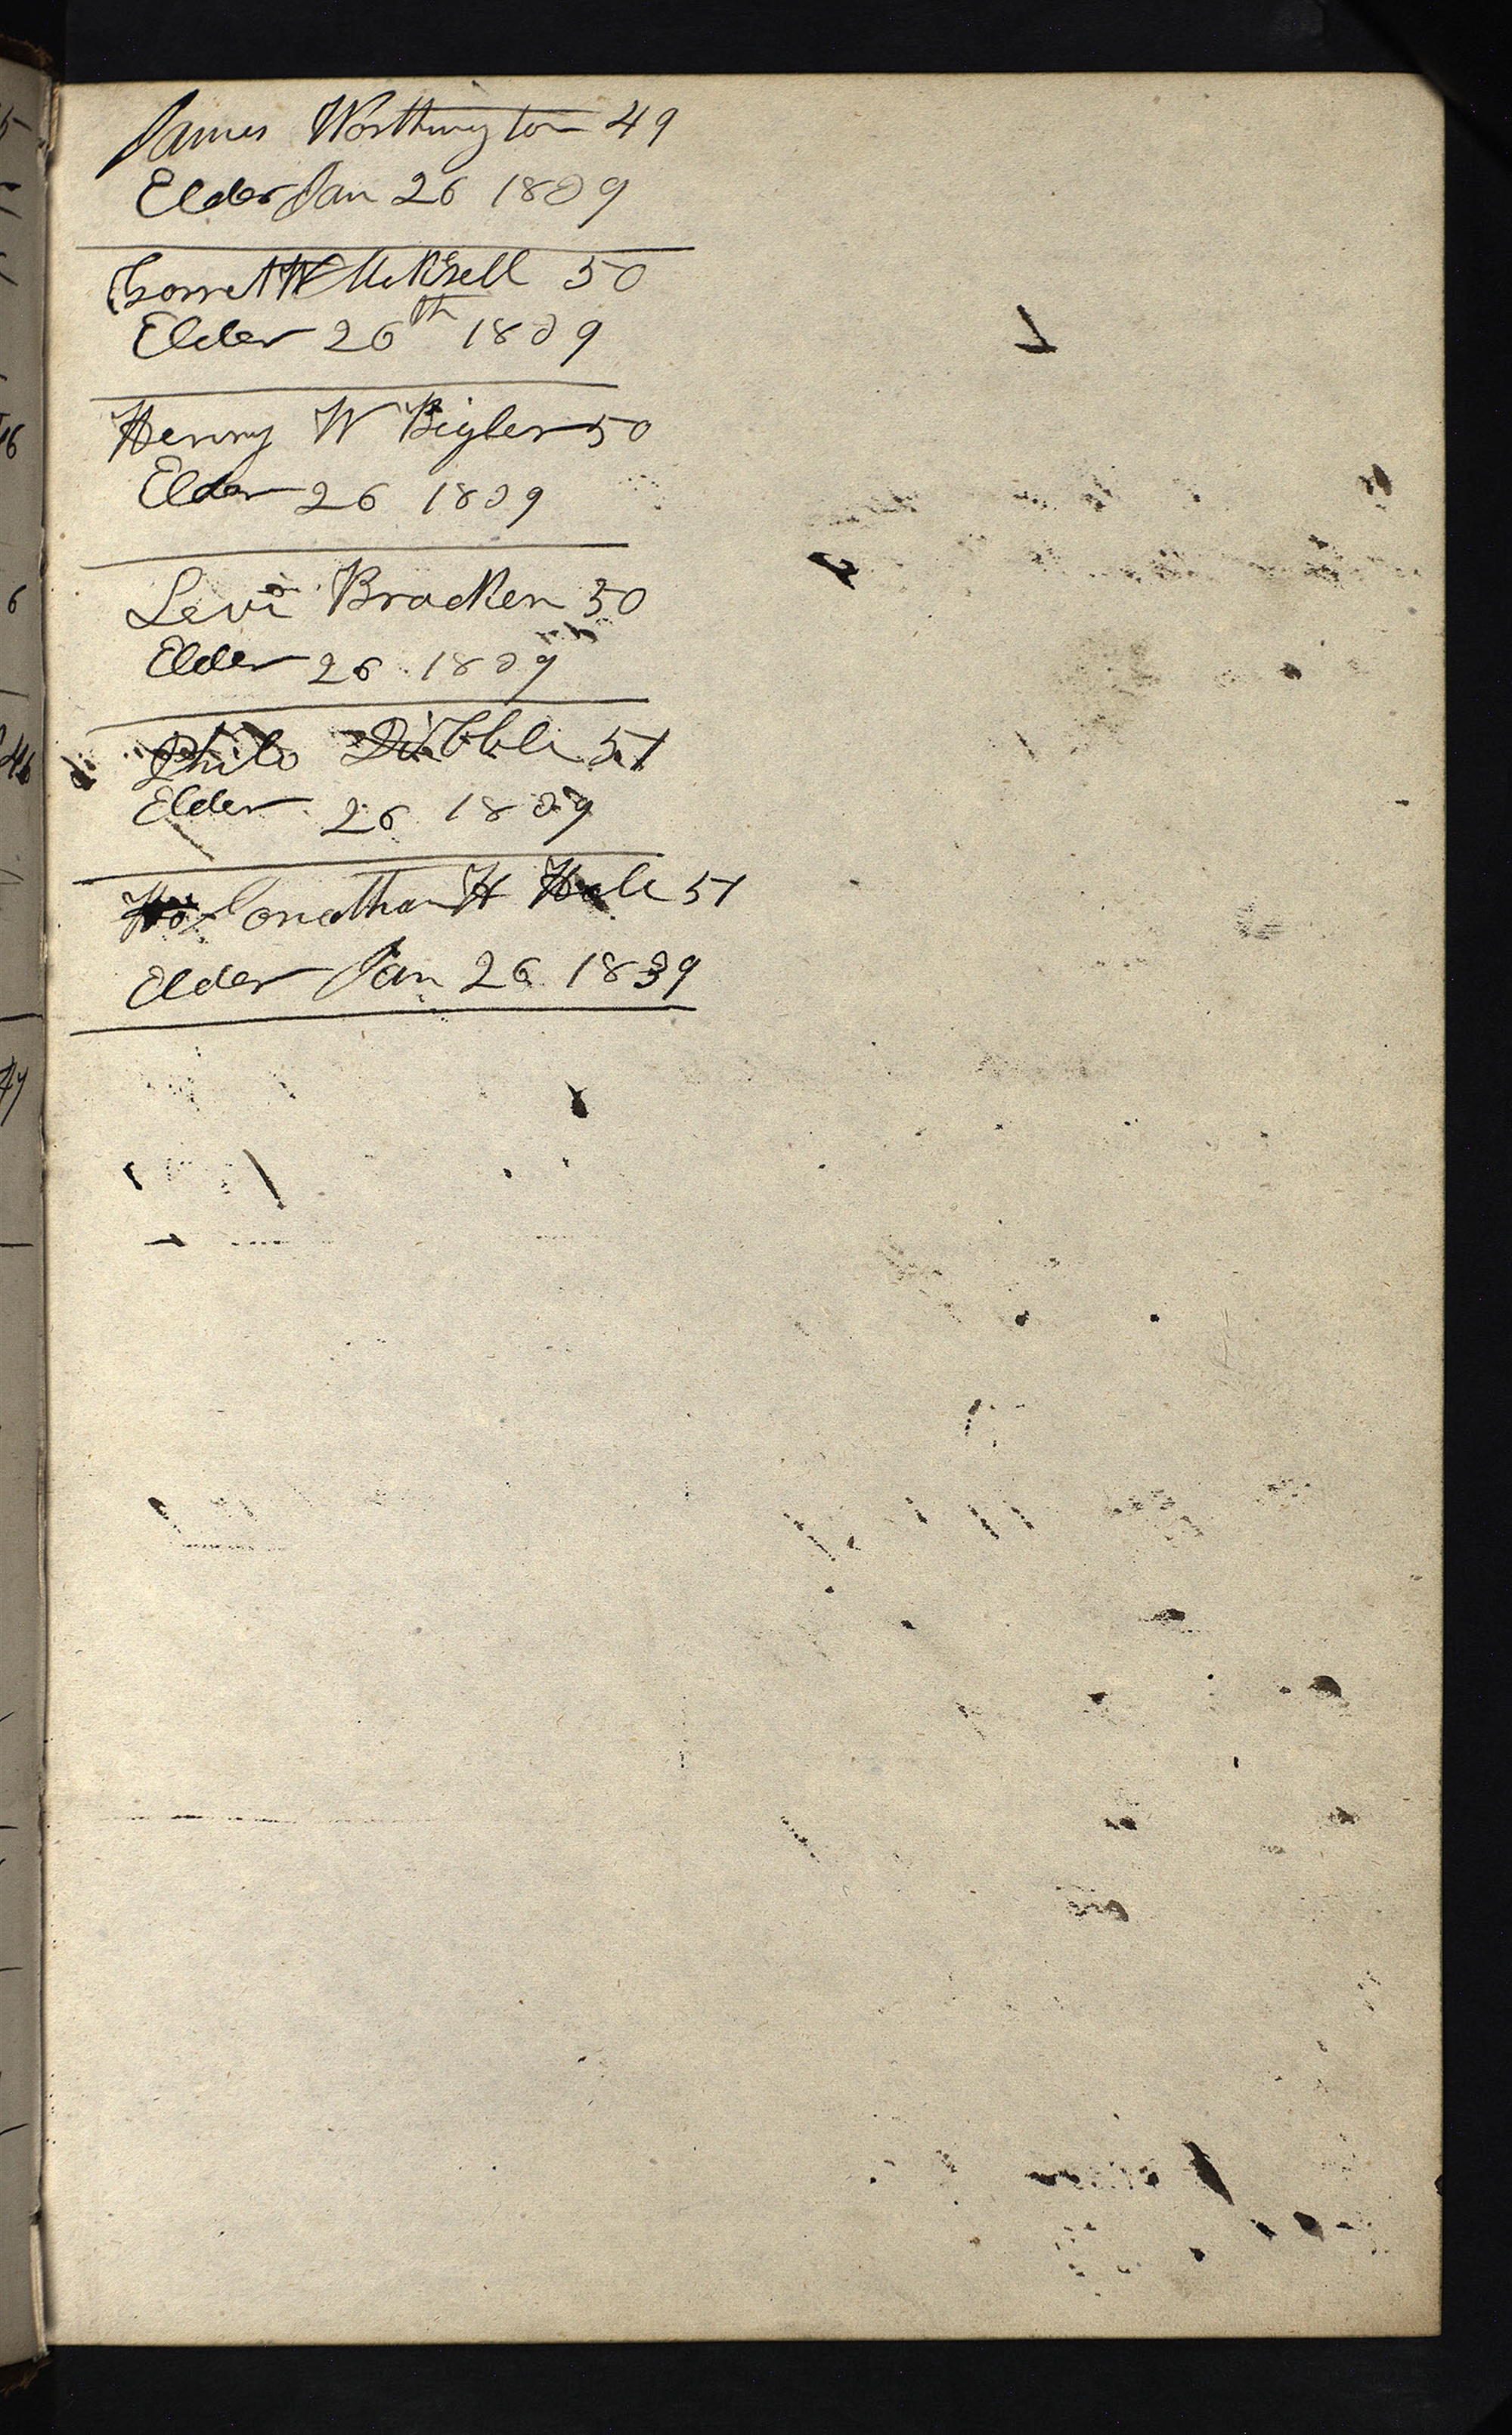 James Worthington 49
Elder Jan 26 1839
Garret W Mikesell 50
Elder 26th 1839
Henry W Bigler 50
Elder 26 1839
Levi Bracken 50
Elder 26 1839
Philo Dibble 51
Elder 26 1839
Jonathan H Hale 51
Elder Jan 26 1839